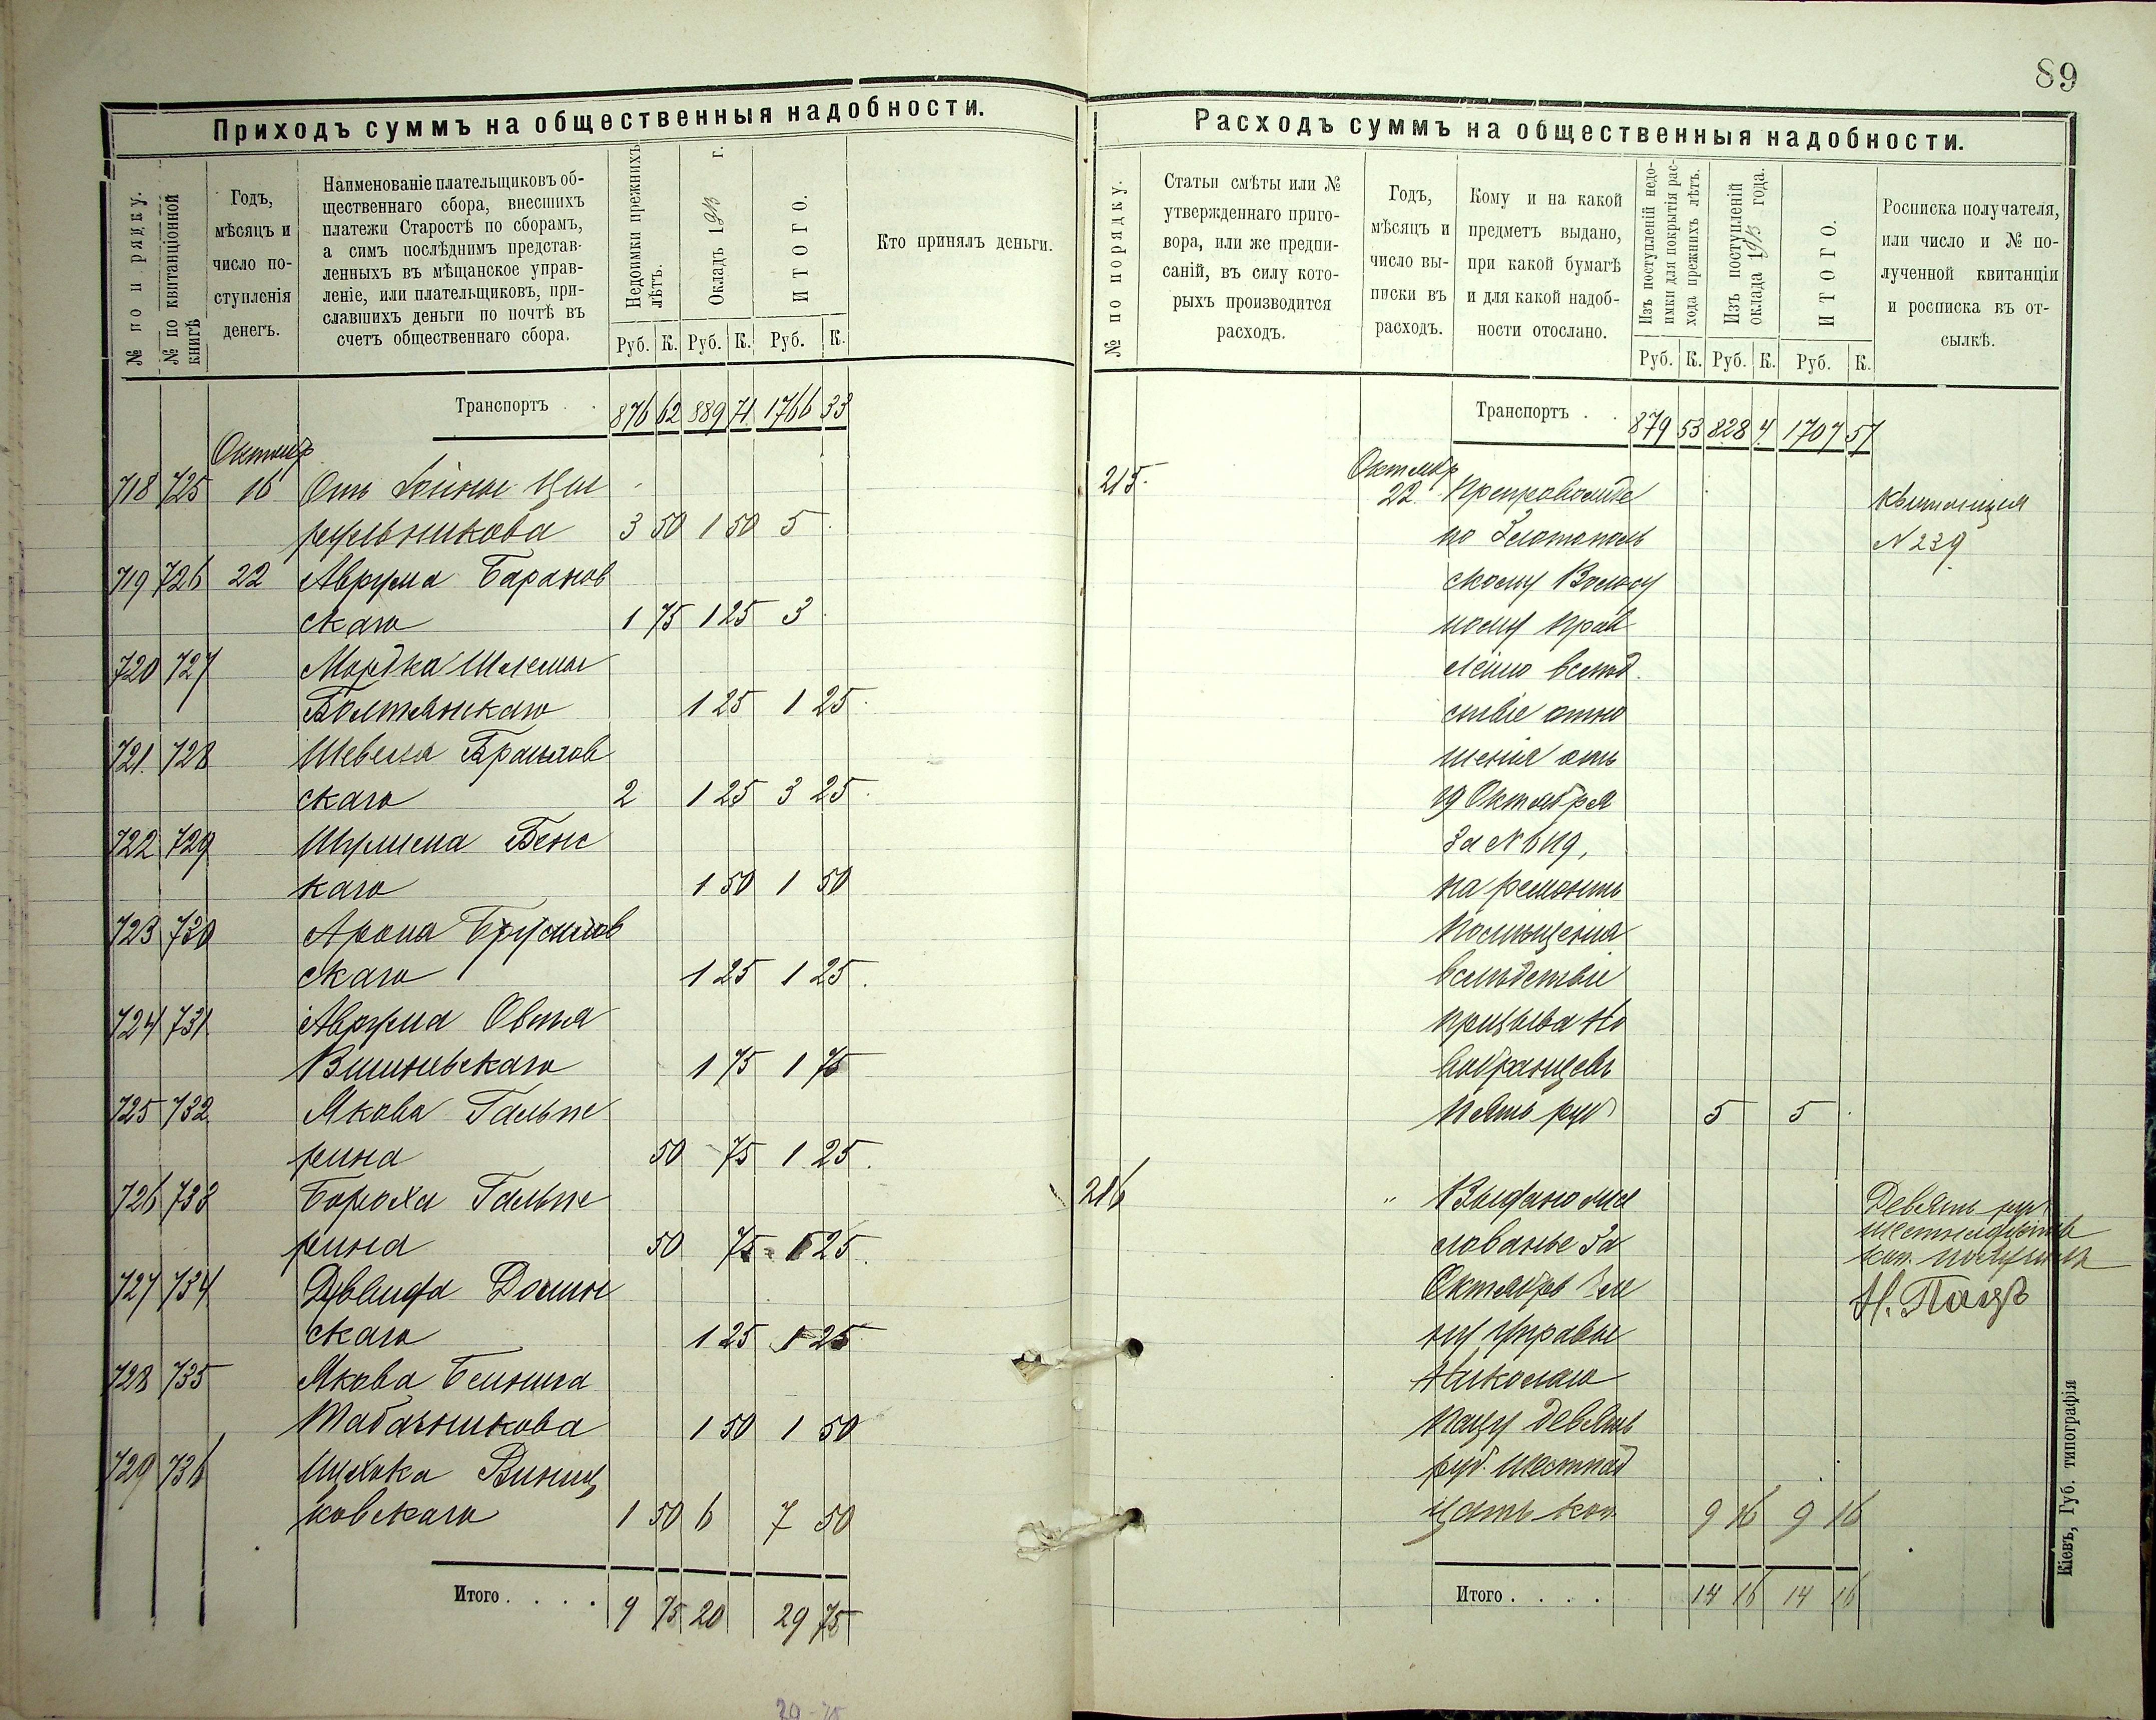 89
Приходъ суммъ на общественныя надобности.
№ по порядку.
№ по квитанціонной книгѣ
Годъ, мѣсяцъ и число поступленія денегъ.
Наименованіе плательщиковъ об-
щественнаго сбора, внесшихъ
платежи Старостѣ по сборамъ,
а симъ послѣднимъ представ-
ленныхъ въ мѣщанское управ-
леніе, или плательщиковъ, при-
славшихъ деньги по почтѣ въ
счетъ общественнаго сбора.
Недоимки прежнихъ лѣтъ.
Окладъ 1913 г.
ИТОГО.
Кто принялъ деньги.
Руб. К. Руб. К. Руб. К.
Транспортъ . . 876 62 889 71 1766 33
Октября
718 725 16 Отъ
рульникова 3 50 1 50 5
719 726 22 Аврума Баранов
скаго 1 75 1 25 3
720 727 Мордка Шлемы
Болтянскаго 1 25 1 25
721 728 Шевеля Браилов
скаго 2 1 25 3 25
722 729 Шулима Бенс
каго 1 50 1 50
723 730 Арона Брусилов
скаго 1 25 1 25
724 731 Аврума Овсея
Вишневскаго 1 75 1 75
725 732 Якова Гальпе
рина 50 75 1 25
726 733 Бороха Гальпе
рина 50 75 1 25
727 734 Давида Долин
скаго 1 25 1 25
728 735 Якова
Табачникова 1 50 1 50
729 736 Ицхока Виниц
ковскаго 1 50 6 7 50
Итого . . . . 9 75 20 29 75
29-75
Расходъ суммъ на общественныя надобности.
№ по порядку.
Статьи смѣты или №
утвержденнаго приго-
вора, или же предпи-
саній, въ силу кото-
рыхъ производится
расходъ.
Годъ,
мѣсяцъ и
число вы-
писки въ
расходъ.
Кому и на какой
предметъ выдано,
при какой бумагѣ
и для какой надоб-
ности отослано.
Изъ поступленій недо-
имки для покрытія рас-
хода прежнихъ лѣтъ.
Изъ поступленій
оклада 1913 года.
ИТОГО.
Росписка получателя,
или число и № по-
лученной квитанціи
и росписка въ от-
сылкѣ.
Руб. К. Руб. К. Руб. К.
Транспортъ . . 879 53 828 4 1707 57
215 Октября
22 Препровожде Квитанция
но Златополь N 239
скому Волост
ному Прав
ленію вслѣд
ствіе отно
шенія отъ
19 Октября
За N 6119,
на ремонтъ
помѣщенія
вслѣдствіе
призыва но
вобранцевъ
пять руб 5 5
216 " Выдано жа Девять руб
лованье за шестнадцать
Октябрь чле коп. получилъ
ну управы Н. Пацъ
Николаю
Пацу девять
руб. шестнад
цать коп. 9 16 9 16
Итого . . . . 14 16 14 16
Кіевъ, Губ. типографія